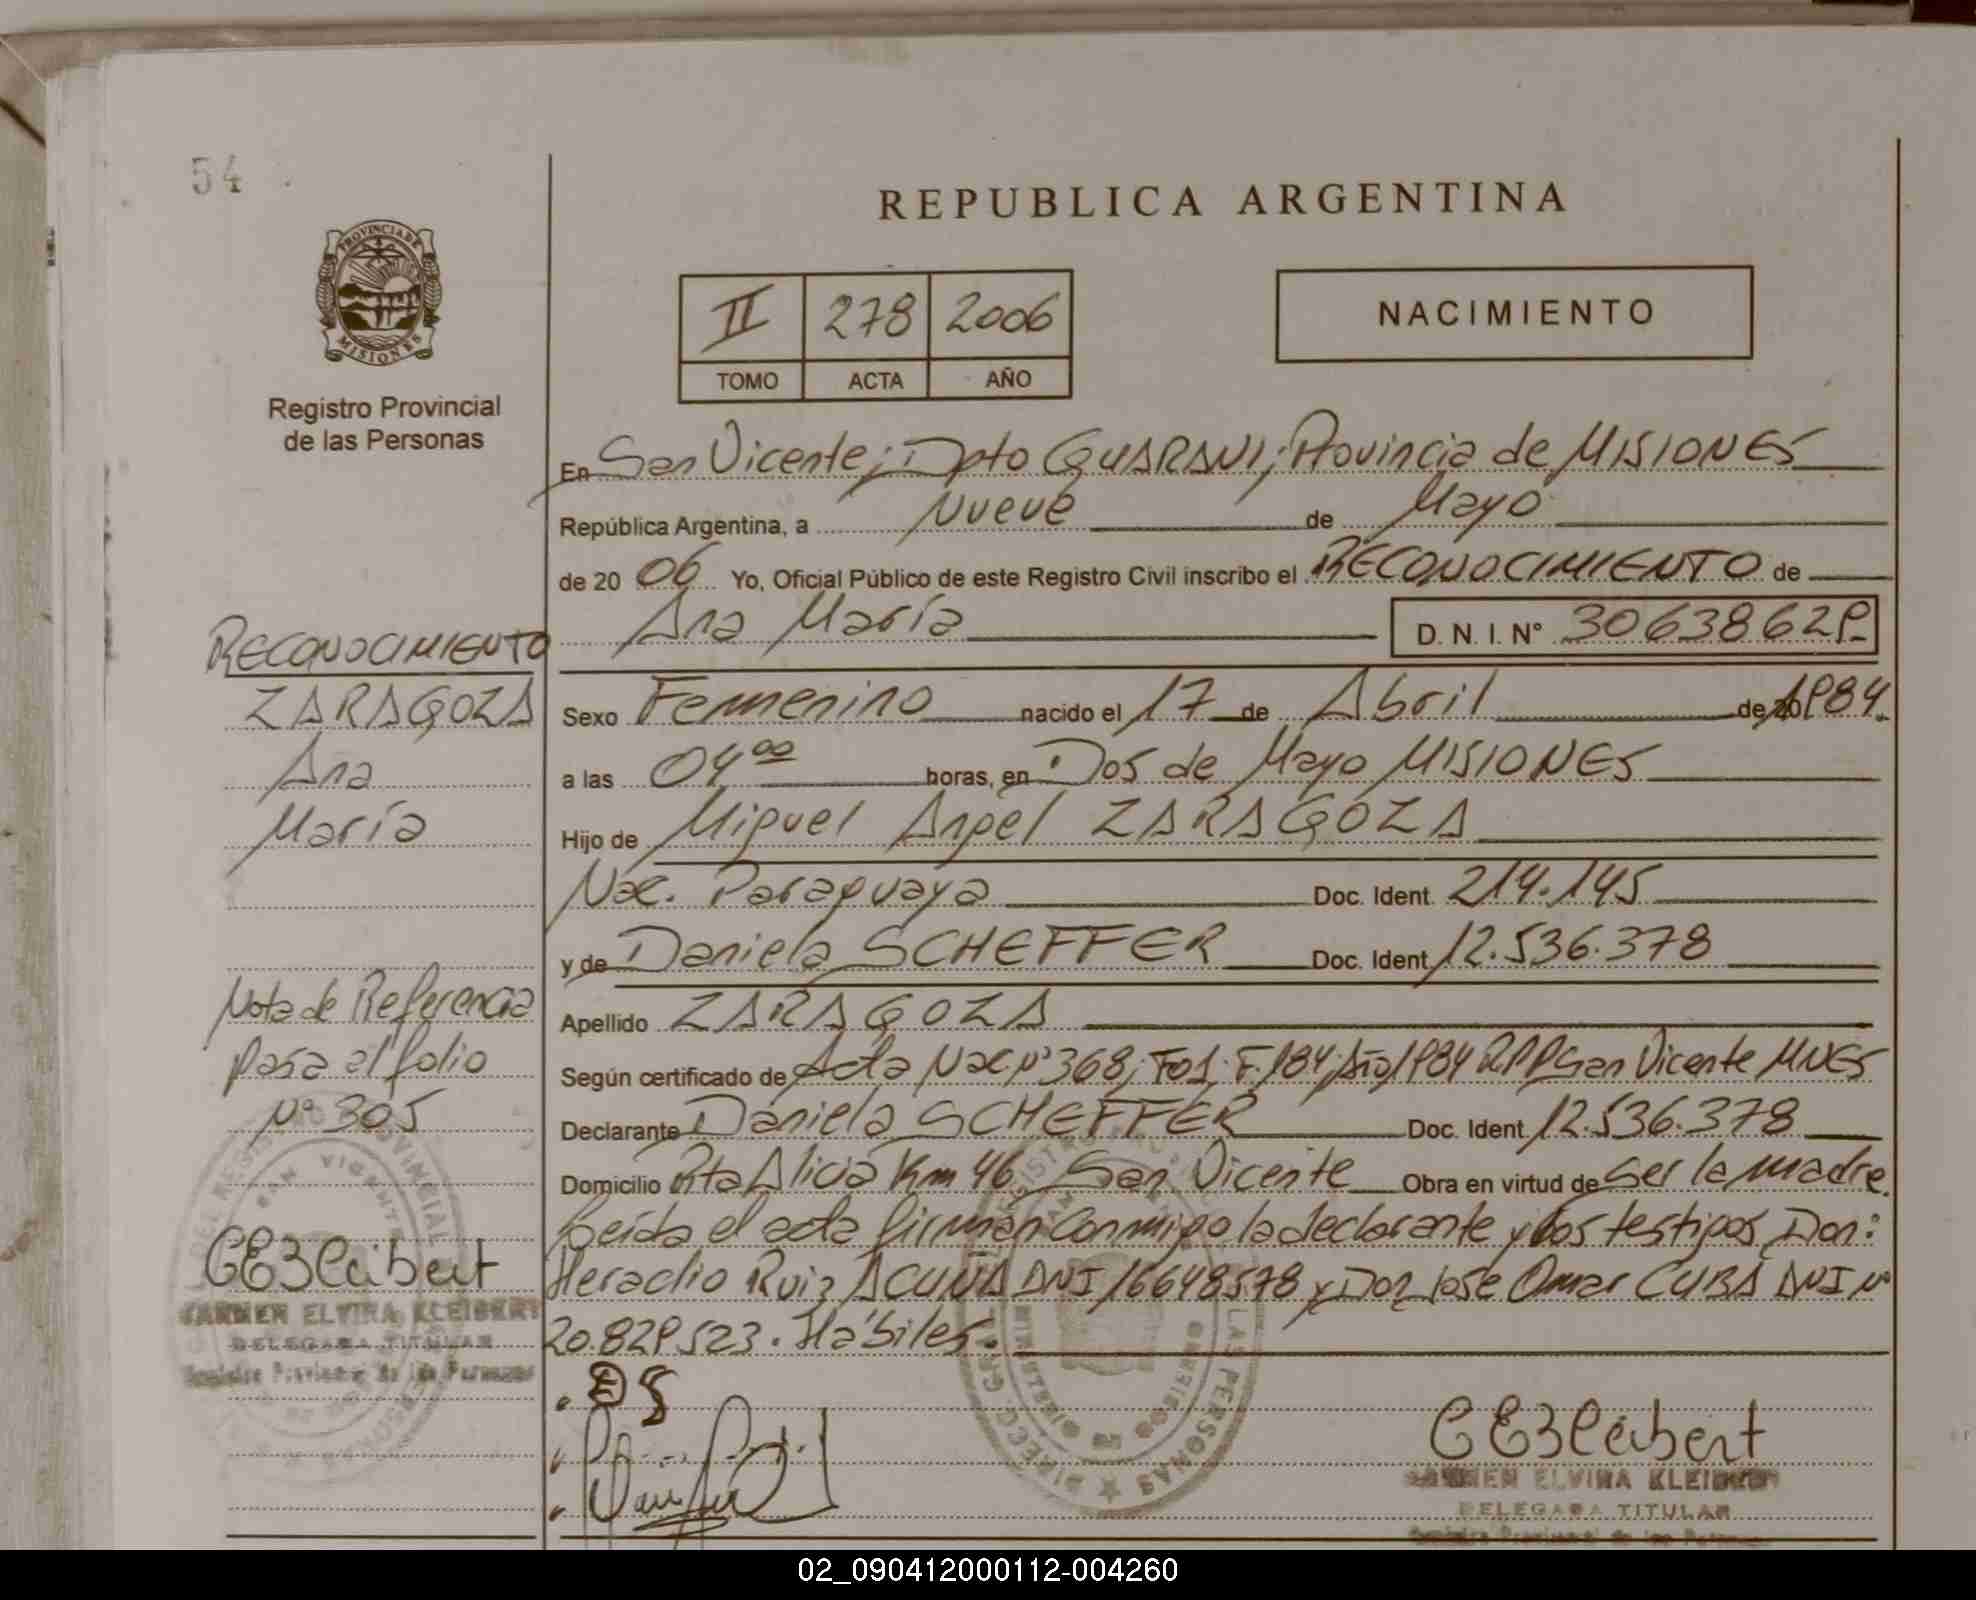 54
REPUBLICA ARGENTINA
PROVINCIA DE
MISIONES
II 278 2006
TOMO ACTA AÑO
NACIMIENTO
Registro Provincial
de las Personas
En San Vicente; Dpto GUARANI; Provincia de MISIONES
República Argentina, a Nueve de Mayo
de 20 06 Yo, Oficial Público de este Registro Civil inscribo el RECONOCIMIENTO de
Ana María D.N.I. Nº 30638629
RECONOCIMIENTO
ZARAGOZA
Ana
María
Sexo Femenino nacido el 17 de Abril de 1984.
a las 04⁰⁰ horas, en Dos de Mayo MISIONES
Hijo de Miguel Angel ZARAGOZA
Nac. Paraguaya Doc. Ident. 214.145
y de Daniela SCHEFFER Doc. Ident. 12.536.378
Nota de Referencia
para el folio
Nº 305
Apellido ZARAGOZA
Según certificado de Acta Nac Nº 368; Tº1; F.184; Año 1984 RPP San Vicente MNES
Declarante Daniela SCHEFFER Doc. Ident. 12.536.378
Domicilio Rta Alicia Km 46 San Vicente Obra en virtud de ser la madre.
Leída el acta firman conmigo la declarante y los testigos, Don:
Heraclio Ruiz ACUÑA DNI 16648578 y Don Jose Omar CUBA DNI Nº
20.829.523. Hábiles.
CE3Kleibert
CARMEN ELVIRA KLEIBERT
DELEGADA TITULAR
Registro Provincial de las Personas
SAN VICENTE
DS
CE3Kleibert
CARMEN ELVIRA KLEIBERT
DELEGADA TITULAR
Registro Provincial de las Personas
02_090412000112-004260